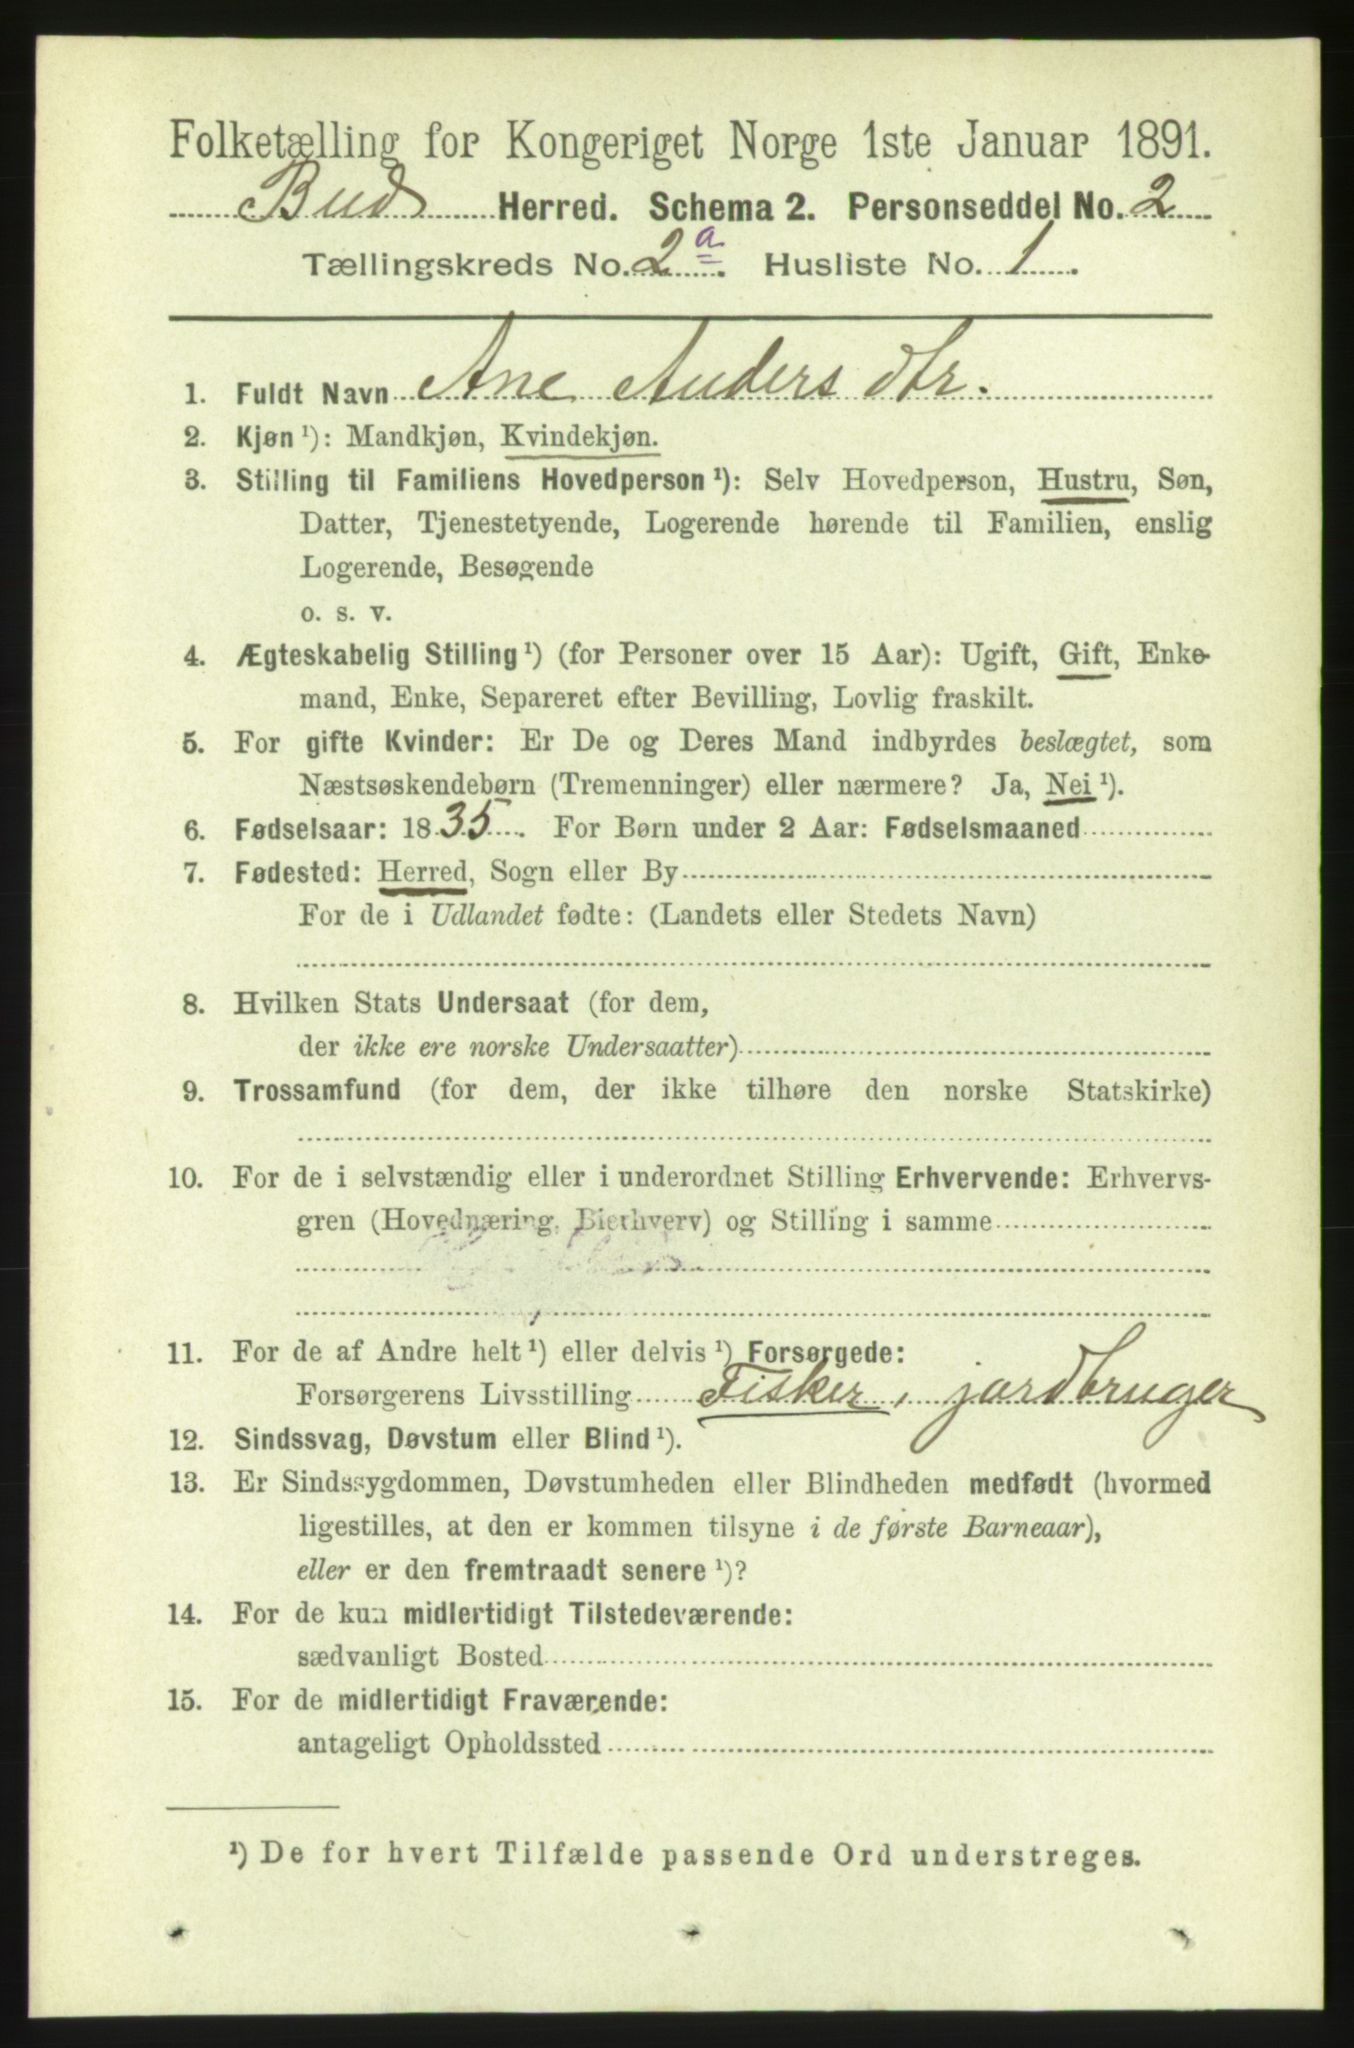 Folketælling for Kongeriget Norge 1ste Januar 1891.
Bud Herred. Schema 2. Personseddel No. 2
Tællingskreds No. 2a. Husliste No. 1.
1. Fuldt Navn Ane Anders dtr.
2. Kjøn ¹): Mandkjøn, Kvindekjøn.
3. Stilling til Familiens Hovedperson ¹): Selv Hovedperson, Hustru, Søn,
Datter, Tjenestetyende, Logerende hørende til Familien, enslig
Logerende, Besøgende
o. s. v.
4. Ægteskabelig Stilling ¹) (for Personer over 15 Aar): Ugift, Gift, Enke-
mand, Enke, Separeret efter Bevilling, Lovlig fraskilt.
5. For gifte Kvinder: Er De og Deres Mand indbyrdes beslægtet, som
Næstsøskendebørn (Tremenninger) eller nærmere? Ja, Nei ¹).
6. Fødselsaar: 1835. For Børn under 2 Aar: Fødselsmaaned
7. Fødested: Herred, Sogn eller By
For de i Udlandet fødte: (Landets eller Stedets Navn)
8. Hvilken Stats Undersaat (for dem,
der ikke ere norske Undersaatter)
9. Trossamfund (for dem, der ikke tilhøre den norske Statskirke)
10. For de i selvstændig eller i underordnet Stilling Erhvervende: Erhvervs-
gren (Hovednæring, Bierhverv) og Stilling i samme
11. For de af Andre helt ¹) eller delvis ¹) Forsørgede:
Forsørgerens Livsstilling Fisker, jordbruger
12. Sindssvag, Døvstum eller Blind ¹).
13. Er Sindssygdommen, Døvstumheden eller Blindheden medfødt (hvormed
ligestilles, at den er kommen tilsyne i de første Barneaar),
eller er den fremtraadt senere ¹)?
14. For de kun midlertidigt Tilstedeværende:
sædvanligt Bosted
15. For de midlertidigt Fraværende:
antageligt Opholdssted
¹) De for hvert Tilfælde passende Ord understreges.